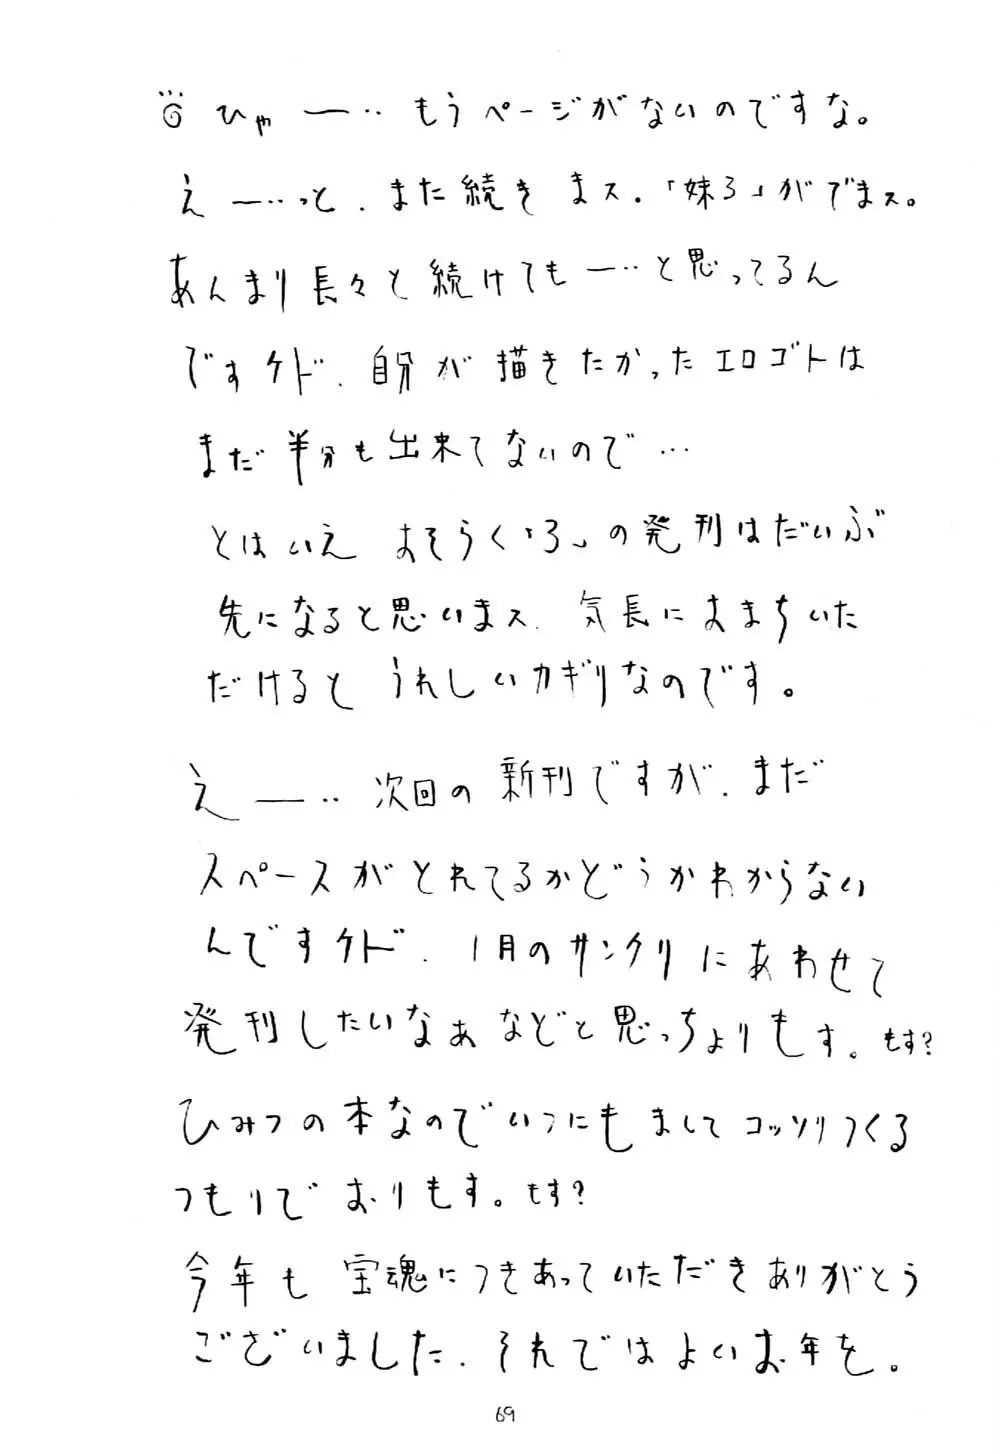 ひゃー‥もうページがないのですな。
えー‥っと、また続きまス。「妹3」がでまス。
あんまり長々と続けてもー‥と思ってるん
ですケド、自分が描きたかったエロゴトは
まだ半分も出来てないので…
とはいえ おそらく「3」の発刊はだいぶ
先になると思いまス、気長におまちいた
だけると うれしいカギリなのです。
えー‥次回の新刊ですが、まだ
スペースがとれてるかどうかわからない
んですケド、1月のサンクリにあわせて
発刊したいなぁなどと思っちょりもす。もす?
ひみつの本なのでいつにもましてコッソリつくる
つもりでおりもす。もす?
今年も 宝魂につきあっていただきありがとう
ございました、それではよいお年を。
69